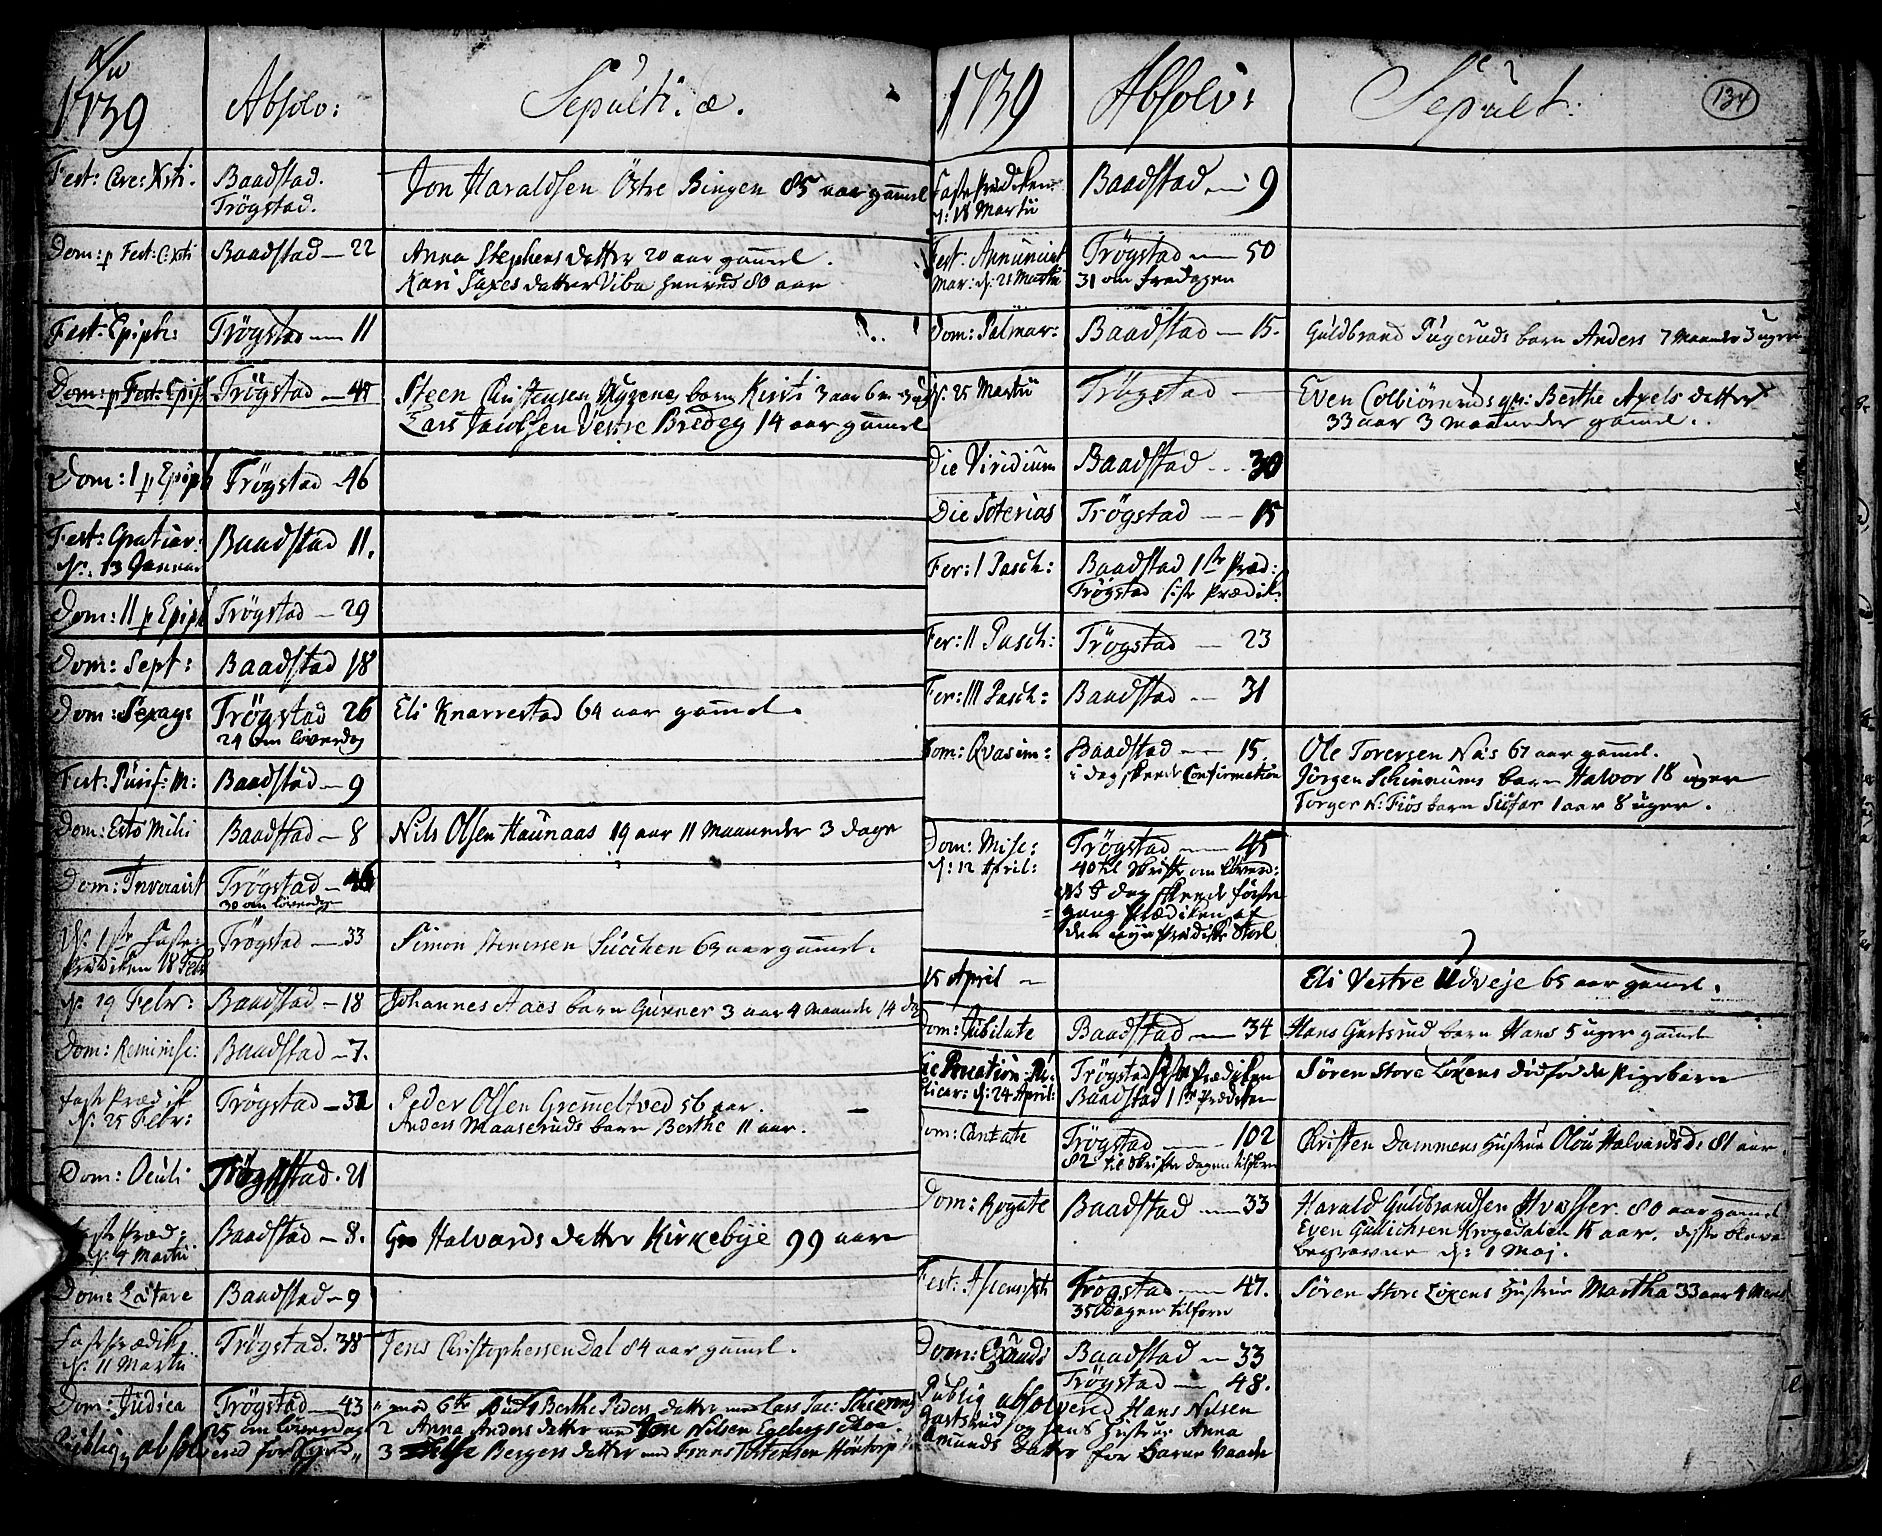 1739
Absolv:
Sepulti. æ.
Fest: Circ: Xsti.
Baadstad.
Trögstad.
Jon Haraldsen Östre Bingen 85 aar gammel
Dom: p Fest: C: Xsti
Baadstad — 22
Anna Stephens datter 20 aar gammel.
Kari Saxes datter Viba henved 80 aar
Fest: Epiph:
Trögstad — 11
Dom: p Fest: Epiph
Trögstad — 48
Steen Christensen barn Kirsti 3 aar 6 m 3
Lars Jacobsen Vestre Bredeg 14 aar gammel
Dom: I p Epiph
Trögstad — 46
Fest: Gratiar:
d: 13 Januar
Baadstad 11.
Dom: II p Epiph
Trögstad — 29
Dom: Sept:
Baadstad 18
Dom: Sexag:
Trögstad 26
24 om löverdag
Eli Knarrestad 64 aar gammel.
Fest: Purif: M:
Baadstad — 9
Dom: Esto Mihi
Baadstad — 8
Nils Olsen Haunaas 19 aar 11 Maaneder 3 dage
Dom: Invocavit
Trögstad — 46
30 om löverdag
d: 1ste Faste
Prædiken 18 Febr
Trögstad — 33
Simon Stenersen Succhen 63 aar gammel.
d: 19 Febr:
Baadstad — 18
Johannes Aaes barn Gunner 3 aar 4 Maaneder 14 da
Dom: Reminisc:
Baadstad — 7.
Faste Prædik
d: 25 Febr:
Trögstad — 32
Peder Olsen Gremeltved 56 aar.
Anders Maaseruds barn Berthe 11 aar.
Dom: Oculi
Trögstad. 21
Faste Præd:
d: 4 Martii
Baadstad — 8.
Halvords datter Kirkebye 99 aar
Dom: Lætare
Baadstad — 9
Faste Prædik.
d: 11 Martii
Trögstad. 38
Jens Christophersen Dal 84 aar gammel.
Dom: Judica
Trögstad — 43
om löverdag
Publiq absol
1 mod 6te Buds Berthe Peders datter med Lars Jac:
2 Anna Anders datter med Nilsen
3 Bergers datter med Frans Tostensen
1739
Absolv:
Sepult:
134
Faste Prædiken
d: 18 Martii
Baadstad — 9
Fest: Annunciat
Mar: d: 21 Martii
Trögstad — 50
31 om fredagen
Dom: Palmar:
Baadstad — 15.
Guldbrand barn Anders 7 Maaneder 3 uger
d: 25 Martii
Trögstad —
Even Colbiörnruds qv: Berthe Axels datter
33 aar 3 Maaneder gammel.
Die Viridium
Baadstad — 30
Die Soterias
Trögstad — 15
Fer: I Pasch:
Baadstad 1ste Præd:
Trögstad siste Prædik:
Fer: II Pasch:
Trögstad — 23
Fer: III Pasch:
Baadstad — 31
Dom: Qvasim:
Baadstad — 15.
i dag skeede Confirmation
Ole Torersen Näs 67 aar gammel.
Jörgen Schinnums barn Halvor 18 uger
Torger N: Fiös barn Siöfar 1 aar 8 uger.
Dom: Mise:
d: 12 April:
Trögstad — 45
40 til Skrifte om löverd:
NB I dag skeede förste
gang Prædiken af
den nye Prædike Stoel
15 April —
Eli Vestre Udveje 65 aar gammel.
Dom: Jubilate
Baadstad — 34
Hans Gartsrud barn Hans 5 uger gammel
d: 24 April:
Trögstad siste Prædiken
Baadstad 1ste Prædiken
Sören Store Löxens dödfödde Pigebarn
Dom: Cantate
Trögstad — 102
82 til Skrifte dagen tilforn
Christen Dammens Hustrue Olou Halvords d: 81 aar.
Dom: Rogate
Baadstad — 33
Harald Guldbrandsen Hvasser 80 aar gammel
Even Gulichsen Krogedalen 15 aar. disse bleve
begravne d: 1 Maj.
Fest: Ascens: Xsti
Trögstad — 47.
35 dagen tilforn
Sören Store Löxens Hustrue Martha 33 aar 4 Maan
Dom: Exaudi
Baadstad — 33
Trögstad — 48.
Publiq absolvered Hans Nilsen
Gartsrud og hans Hustrue Anna
Amunds Datter for Barne Vaade